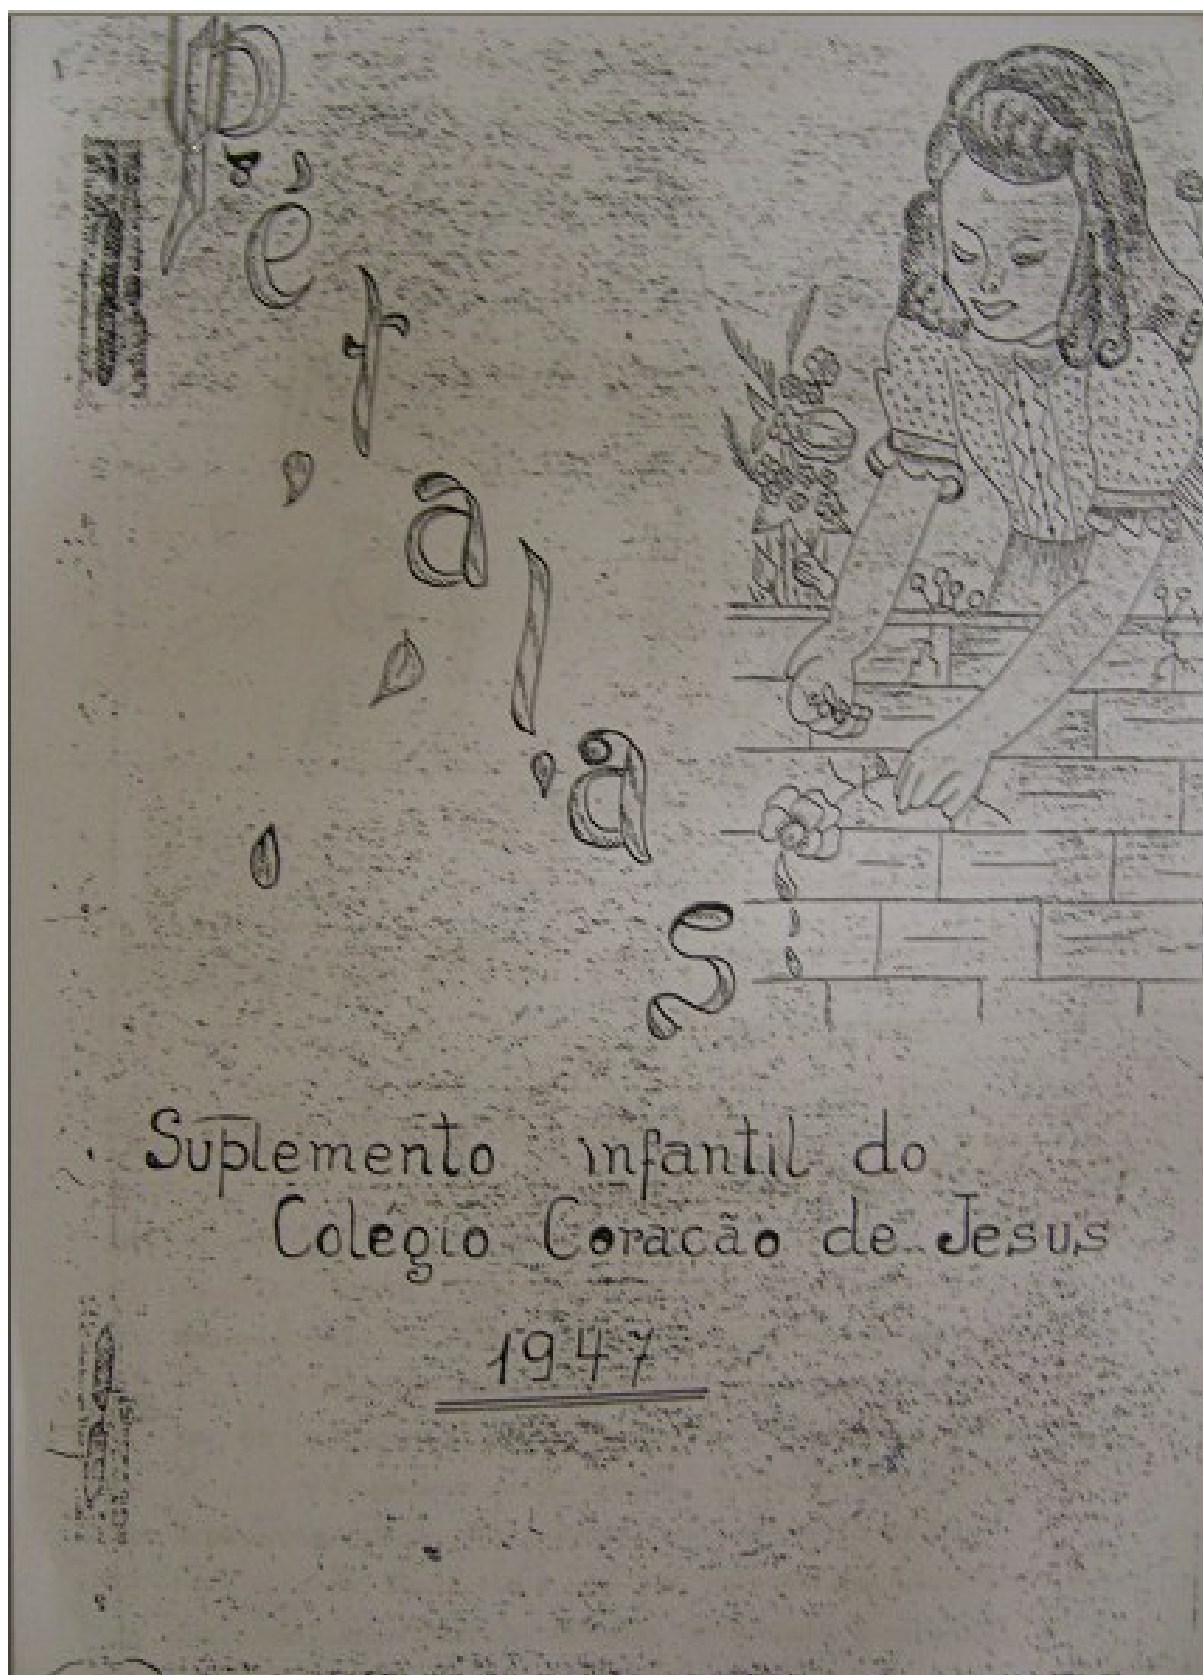 Pétalas
Suplemento infantil do
Colégio Coração de Jesus
1947